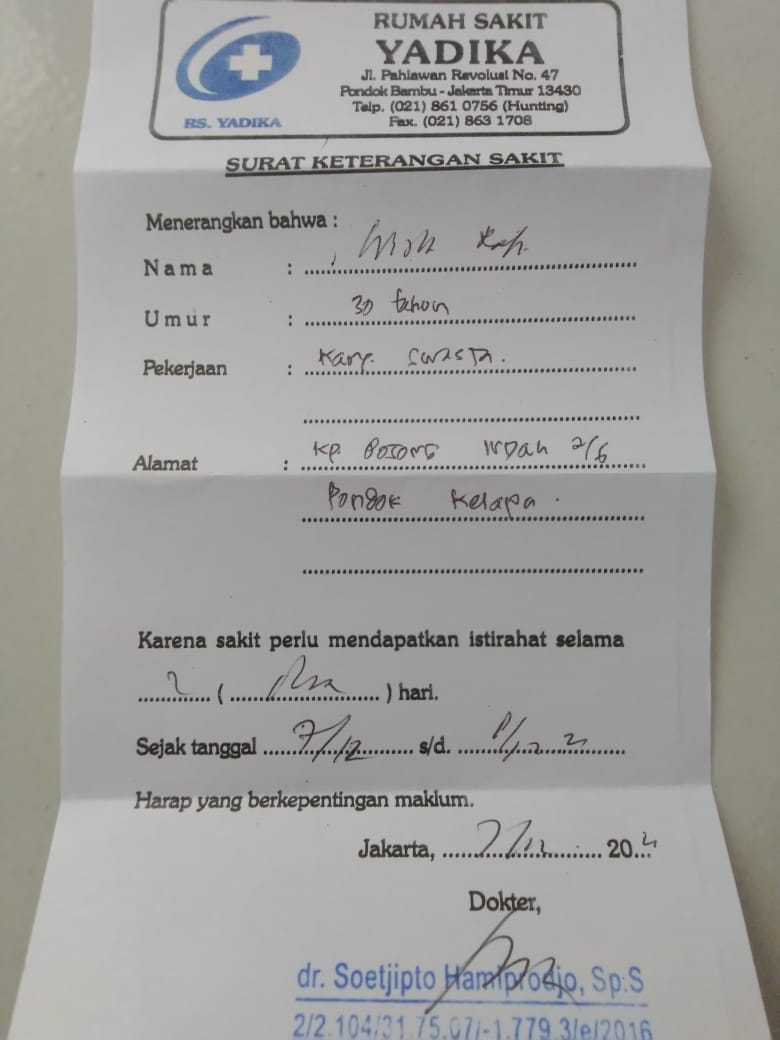 RUMAH SAKIT
YADIKA
Jl. Pahlawan Revolusi No. 47
Pondok Bambu - Jakarta Timur 13430
Telp. (021) 861 0756 (Hunting)
Fax. (021) 863 1708
RS. YADIKA
SURAT KETERANGAN SAKIT
Menerangkan bahwa :
Nama :
Umur : 30 tahun
Pekerjaan : Kary. Swasta.
Alamat : Kp. 2/6
Pondok Kelapa.
Karena sakit perlu mendapatkan istirahat selama
2 ( Dua ) hari.
Sejak tanggal 7/12 s/d.
Harap yang berkepentingan maklum.
Jakarta, 7/12 20
Dokter,
dr. Soetjipto Hamiprodjo, Sp.S
2/2.104/31.75.07/-1.779.3/e/2016